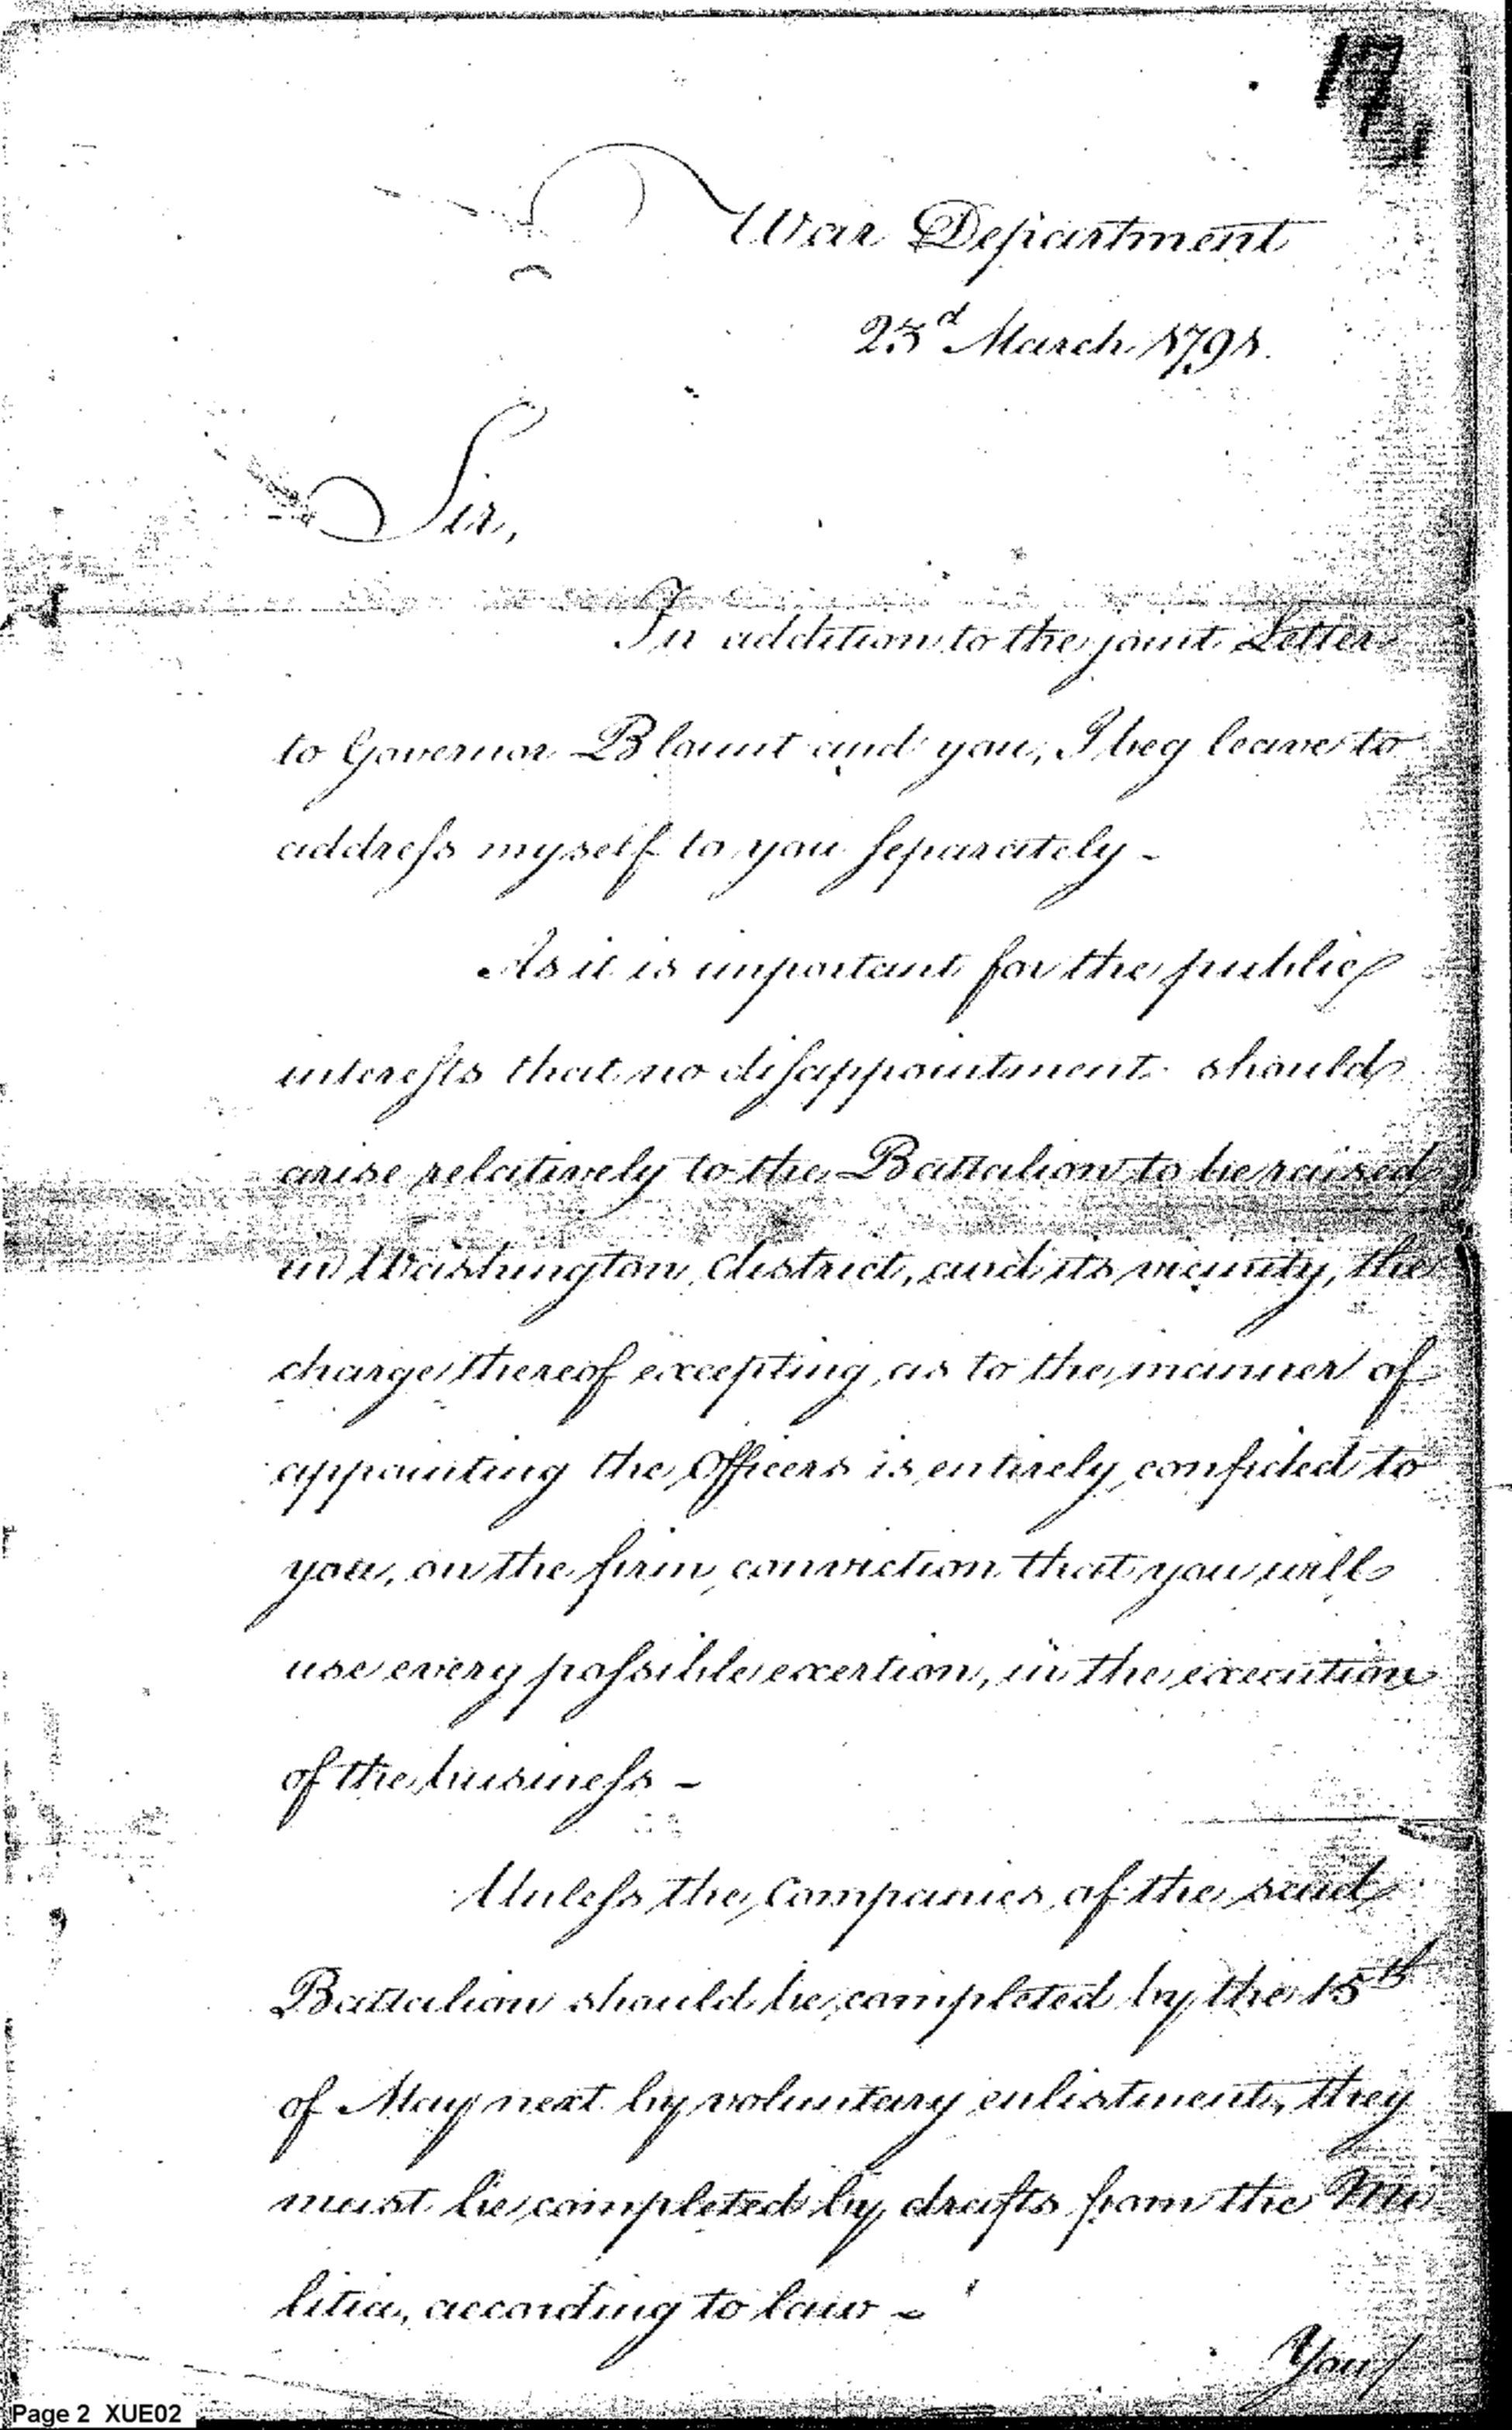 17
War Department
23d March 1791.
Sir,
In addition to the joint Letter
to Governor Blount and you, I beg leave to
address myself to you separately -
As it is important for the public
interests that no disappointment should
arise relatively to the Battalion to be raised
in Washington district, and its vicinity, the
charge thereof excepting as to the manner of
appointing the Officers is entirely confided to
you, on the firm conviction that you will
use every possible exertion, in the execution
of the business -
Unless the Companies of the said
Battalion should be completed by the 15th
of May next by voluntary enlistments, they
must be completed by drafts from the Mi
litia, according to law -
You/
Page 2 XUE02